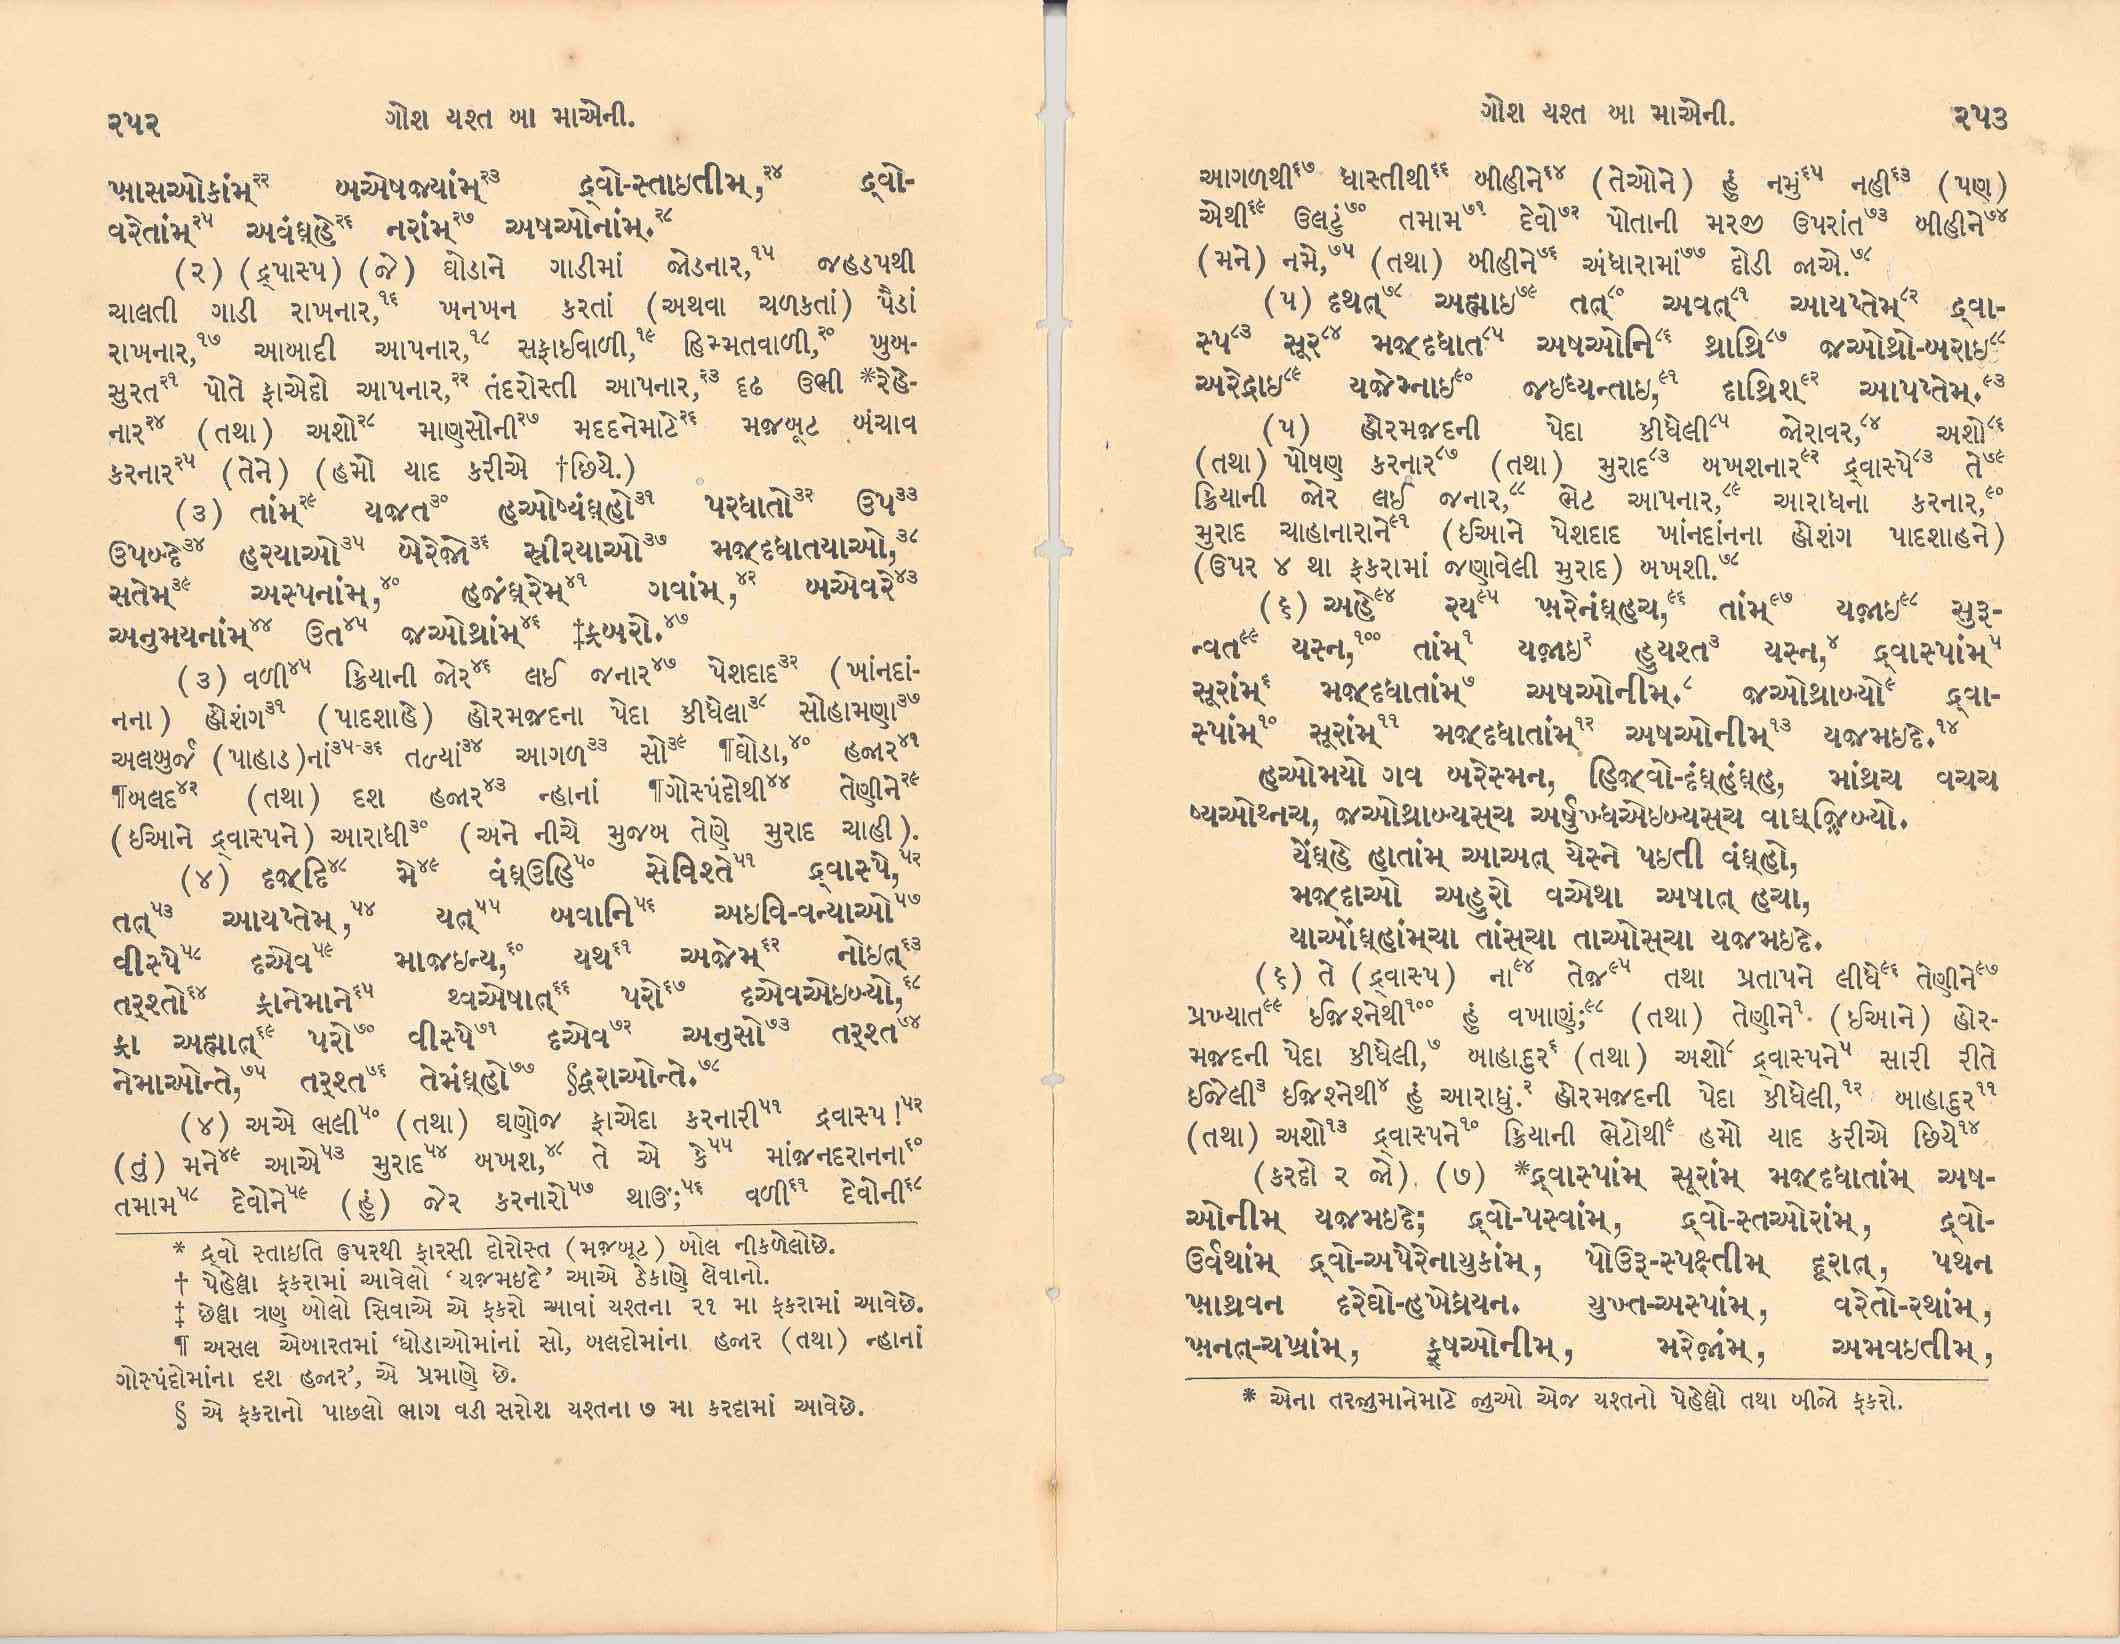 ૨૫૨ ગોશ યશ્ત બા માએની.
ખ઼ાસઓકાંમ્૨૨ બએષજયાંમ્૨૩ દ્ર્વો-સ્તાઇતીમ્,૨૪ દ્ર્વો-
વરેતાંમ્૨૫ અવંઘ્હે૨૬ નરાંમ્૨૭ અષઓનાંમ્.૨૮
(૨) (દ્ર્પાસ્પ) (જે) ઘોડાને ગાડીમાં જોડનાર,૧૫ જહડપથી
ચાલતી ગાડી રાખનાર,૧૬ ખનખન કરતાં (અથવા ચળકતાં) પૈડાં
રાખનાર,૧૭ આબાદી આપનાર,૧૮ સફાઈવાળી,૧૯ હિમ્મતવાળી,૨૦ ખુબ-
સુરત૨૧ પોતે ફાએદો આપનાર,૨૨ તંદરોસ્તી આપનાર,૨૩ દૃઢ ઉભી *રેહે-
નાર૨૪ (તથા) અશો૨૮ માણસોની૨૭ મદદનેમાટે૨૬ મજબૂટ બંચાવ
કરનાર૨૫ (તેને) (હમો યાદ કરીએ †છિયે.)
(૩) તાંમ્૨૯ યજ઼ત૩૦ હઓષ્યંઘ્હો૩૧ પરધાતો૩૨ ઉપ૩૩
ઉપબ્દે૩૪ હરયાઓ૩૫ બેરેજ઼ો૩૬ સ્રીરયાઓ૩૭ મજ઼્દધાતયાઓ,૩૮
સતેમ્૩૯ અસ્પનાંમ્,૪૦ હજંઘ્રેમ્૪૧ ગવાંમ્,૪૨ બએવરે૪૩
અનુમયનાંમ્૪૪ ઉત૪૫ જ઼ઓથ્રાંમ્૪૬ ‡ફ્રબરો.૪૭
(૩) વળી૪૫ ક્રિયાની જોર૪૬ લઈ જનાર૪૭ પેશદાદ૩૨ (ખાંનદાં-
નના) હૌશંગ૩૧ (પાદશાહે) હોરમજ઼દના પેદા કીધેલા૩૮ સોહામણા૩૭
અલબુર્જ઼ (પાહાડ)નાં૩૫-૩૬ તળ્યાં૩૪ આગળ૩૩ સો૩૯ ¶ઘોડા,૪૦ હજાર૪૧
¶બલદ૪૨ (તથા) દશ હજાર૪૩ ન્હાનાં ¶ગોસ્પંદોથી૪૪ તેણીને૨૯
(ઈઆને દ્ર્વાસ્પને) આરાધી૩૦ (અને નીચે મુજબ તેણે મુરાદ ચાહી).
(૪) દજ઼્દિ૪૮ મે૪૯ વંઘ્ઉહિ૫૦ સેવિશ્તે૫૧ દ્ર્વાસ્પે,૫૨
તત્૫૩ આયપ્તેમ્,૫૪ યત્૫૫ બવાનિ૫૬ અઇવિ-વન્યાઓ૫૭
વીસ્પે૫૮ દએવ૫૯ માજ઼ઇન્ય,૬૦ યથ૬૧ અજ઼ેમ્૬૨ નોઇત્૬૩
તર્શ્તો૬૪ ફ્રાનેમાને૬૫ થ્વએષાત્૬૬ પરો૬૭ દએવએઇબ્યો,૬૮
ફ્રા અહ્માત્૬૯ પરો૭૦ વીસ્પે૭૧ દએવ૭૨ અનુસો૭૩ તર્શ્ત૭૪
નેમાઓન્તે,૭૫ તર્શ્ત૭૬ તેમંઘ્હો૭૭ §દ્વરાઓન્તે.૭૮
(૪) અએ ભલી૫૦ (તથા) ઘણોજ ફાએદા કરનારી૫૧ દ્રવાસ્પ!૫૨
(તું) મને૪૯ આએ૫૩ મુરાદ૫૪ બખશ,૪૮ તે એ કે૫૫ માંજ઼નદરાનના૬૦
તમામ૫૮ દેવોને૫૯ (હું) જેર કરનારો૫૭ થાઊં;૫૬ વળી૬૧ દેવોની૬૮
* દ્ર્વો સ્તાઇતિ ઉપરથી ફારસી દોરોસ્ત (મજ઼બૂટ) બોલ નીકળેલોછે.
† પેહેલ્લા ફકરામાં આવેલો ‘યજ઼મઇદે’ આએ ઠેકાણે લેવાનો.
‡ છેલ્લા ત્રણ બોલો સિવાએ એ ફકરો આવાં યશ્તના ૨૧ મા ફકરામાં આવેછે.
¶ અસલ એબારતમાં ‘ઘોડાઓમાંનાં સો, બલદોમાંના હજાર (તથા) ન્હાનાં
ગોસ્પંદોમાંના દશ હજાર’, એ પ્રમાણે છે.
§ એ ફકરાનો પાછલો ભાગ વડી સરોશ યશ્તના ૭ મા કરદામાં આવેછે.
ગોશ યશ્ત બા માએની. ૨૫૩
આગળથી૬૭ ધાસ્તીથી૬૬ બીહીને૬૪ (તેઓને) હું નમું૬૫ નહી૬૩ (પણ)
એથી૬૯ ઉલટું૭૦ તમામ૭૧ દેવો૭૨ પોતાની મરજી ઉપરાંત૭૩ બીહીને૭૪
(મને) નમે,૭૫ (તથા) બીહીને૭૬ અંધારામાં૭૭ દોડી જાએ.૭૮
(૫) દથત્૭૮ અહ્માઇ૭૯ તત્૮૦ અવત્૮૧ આયપ્તેમ્૮૨ દ્ર્વા-
સ્પ૮૩ સૂર૮૪ મજ઼્દધાત૮૫ અષઓનિ૮૬ થ્રાથ્રિ૮૭ જ઼ઓથ્રો-બરાઇ૮૮
અરેદ્રાઇ૮૯ યજ઼ેમ્નાઇ૯૦ જઇધ્યન્તાઇ,૯૧ દાથ્રિશ્૯૨ આપપ્તેમ્.૯૩
(૫) હૌરમજ઼દની પેદા કીધેલી૮૫ જોરાવર,૮૪ અશો૮૬
(તથા) પોષણ કરનાર૮૭ (તથા) મુરાદ૮૩ બખશનાર૯૨ દ્ર્વાસ્પે૮૩ તે૭૯
ક્રિયાની જોર લઈ જનાર,૮૮ ભેટ આપનાર,૮૯ આરાધના કરનાર,૯૦
મુરાદ ચાહાનારાને૯૧ (ઈઆને પેશદાદ ખાંનદાંનના હૌશંગ પાદશાહને)
(ઉપર ૪ થા ફકરામાં જણાવેલી મુરાદ) બખશી.૭૮
(૬) અહે૯૪ રય૯૫ ખ઼રેનંઘ્હચ,૯૬ તાંમ્૯૭ યજ઼ાઇ૯૮ સુરૂ-
ન્વત૯૯ યસ્ન,૧૦૦ તાંમ્૧ યજ઼ાઇ૨ હુયશ્ત૩ યસ્ન,૪ દ્ર્વાસ્પાંમ્૫
સૂરાંમ્૬ મજ઼્દધાતાંમ્૭ અષઓનીમ્.૮ જ઼ઓથ્રાબ્યો૯ દ્ર્વા-
સ્પાંમ્૧૦ સૂરાંમ્૧૧ મજ઼્દધાતાંમ્૧૨ અષઓનીમ્૧૩ યજ઼મઇદે.૧૪
હઓમયો ગવ બરેસ્મન, હિજ઼્વો-દંઘ્હંઘ્હ, માંથ્રચ વચચ
ષ્યઓથ્નચ, જ઼ઓથ્રાબ્યસ્ચ અર્ષુખ્ધએઇબ્યસ્ચ વાઘ્જ઼િબ્યો.
યેંઘ્હે હાતાંમ્ આઅત્ યેસ્ને પઇતી વંઘ્હો,
મજ઼્દાઓ અહુરો વએથા અષાત્ હચા,
યાઓંઘ્હાંમ્ચા તાંસ્ચા તાઓસ્ચા યજ઼મઇદે.
(૬) તે (દ્ર્વાસ્પ) ના૯૪ તેજ૯૫ તથા પ્રતાપને લીધે૯૬ તેણીને૯૭
પ્રખ્યાત૯૯ ઈજ઼શ્નેથી૧૦૦ હું વખાણું;૯૮ (તથા) તેણીને૧ (ઈઆને) હોર-
મજ઼દની પેદા કીધેલી,૭ બાહાદુર૬ (તથા) અશો૮ દ્ર્વાસ્પને૫ સારી રીતે
ઈજેલી૩ ઈજ઼શ્નેથી૪ હું આરાધું.૨ હૌરમજ઼દની પેદા કીધેલી,૧૨ બાહાદુર૧૧
(તથા) અશો૧૩ દ્ર્વાસ્પને૧૦ ક્રિયાની ભેટોથી૯ હમો યાદ કરીએ છિયે૧૪
(કરદો ૨ જો). (૭) *દ્ર્વાસ્પાંમ્ સૂરાંમ્ મજ઼્દધાતાંમ્ અષ-
ઓનીમ્ યજ઼મઇદે; દ્ર્વો-પસ્વાંમ્, દ્ર્વો-સ્તઓરાંમ્, દ્ર્વો-
ઉર્વથાંમ્ દ્ર્વો-અપેરેનાયુકાંમ્, પોઉરૂ-સ્પક્ષ્તીમ્ દૂરાત્, પથન
ખ઼ાથ્રવન દરેઘો-હખેધ્રયન. યુખ્ત-અસ્પાંમ્, વરેતો-રથાંમ્,
ખ઼નત્-ચખ્રાંમ્, ફ્ષઓનીમ્, મરેજ઼ાંમ્, અમવઇતીમ્,
* એના તરજુમાનેમાટે જુઓ એજ યશ્તનો પેહેલ્લો તથા બીજો ફકરો.